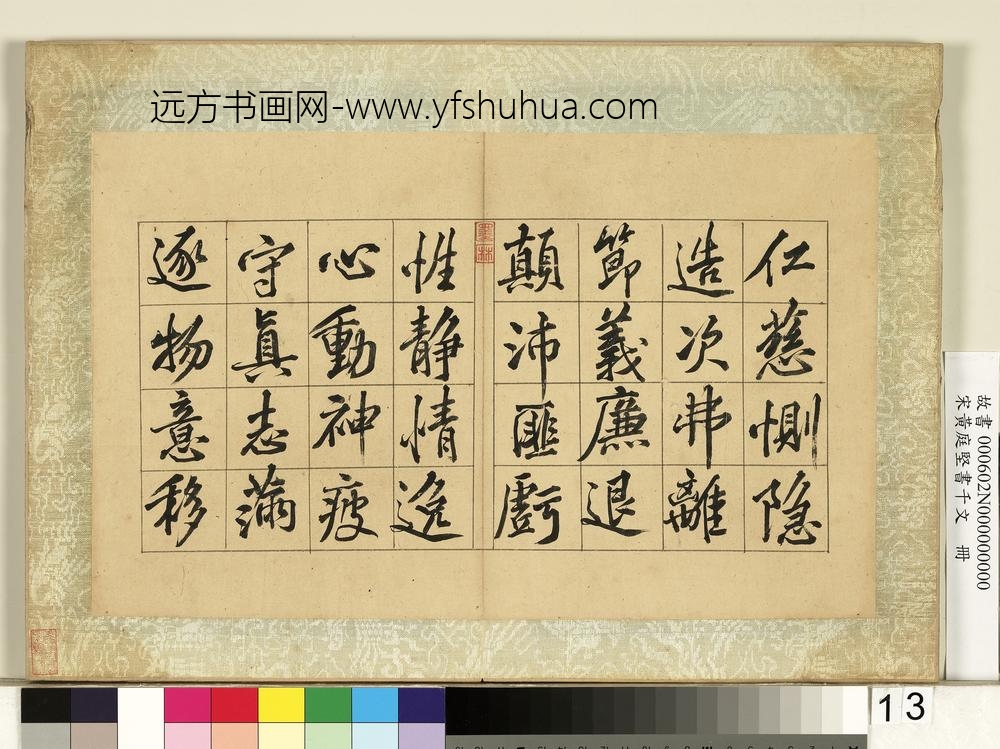 远方书画网-www.yfshuhua.com
仁慈惻隐
造次弗離
節義廉退
顛沛匪虧
性静情逸
心動神疲
守真志满
逐物意移
墨林
故書 000602N000000000
宋黃庭堅書千文 冊
13